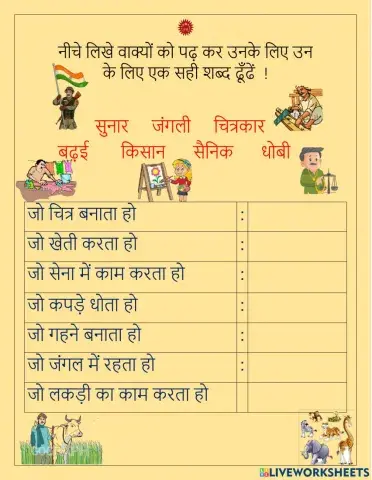 नीचे लिखे वाक्यों को पढ़ कर उनके लिए उन
के लिए एक सही शब्द ढूँढें !
सुनार जंगली चित्रकार
बढ़ई किसान सैनिक धोबी
जो चित्र बनाता हो :
जो खेती करता हो :
जो सेना में काम करता हो :
जो कपड़े धोता हो :
जो गहने बनाता हो :
जो जंगल में रहता हो :
जो लकड़ी का काम करता हो
LIVEWORKSHEETS